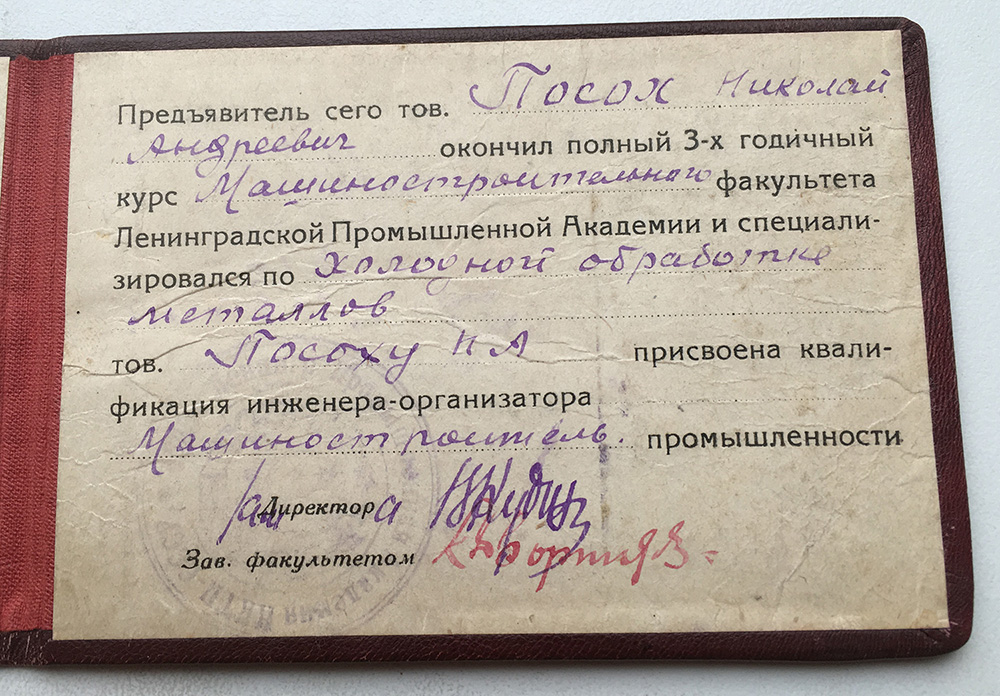 Предъявитель сего тов. Посох Николай
Андреевич окончил полный 3-х годичный
курс Машиностроительного факультета
Ленинградской Промышленной Академии и специали-
зировался по холодной обработке
металлов
тов. Посоху Н А присвоена квали-
фикация инженера-организатора
Машиностроитель. промышленности
Зам Директор а
Зав. факультетом